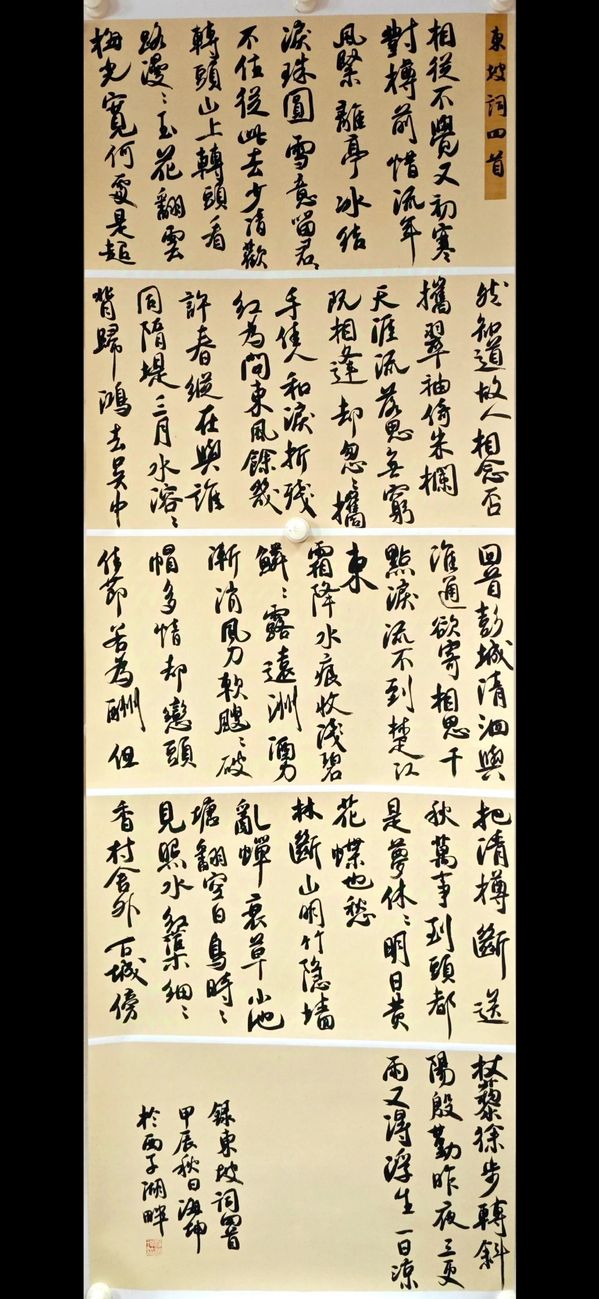 東坡詞四首
相從不覺又初寒
對樽前惜流年
風緊離亭冰結
淚珠圓雪意留君
不住從此去少清歡
轉頭山上轉頭看
路漫〻玉花翻雲
海光寬何處是超
然知道故人相念否
攜翠袖倚朱欄
天涯流落思無窮
既相逢却忽〻攜
手佳人和淚折殘
紅為問東風餘幾
許春縱在與誰
同隋堤三月水溶〻
背歸鴻去吳中
回首彭城清泗與
淮通欲寄相思千
點淚流不到楚江
東
霜降水痕收淺碧
鱗〻露遠洲酒力
漸消風力軟颼〻破
帽多情却戀頭
佳節若為酬但
把清樽斷送
秋萬事到頭都
是夢休〻明日黃
花蝶也愁
林斷山明竹隱墻
亂蟬衰草小池
塘翻空白鳥時〻
見照水紅蕖細〻
香村舍外古城傍
杖藜徐步轉斜
陽殷勤昨夜三更
雨又得浮生一日涼
錄東坡詞四首
甲辰秋日海坤
於西子湖畔